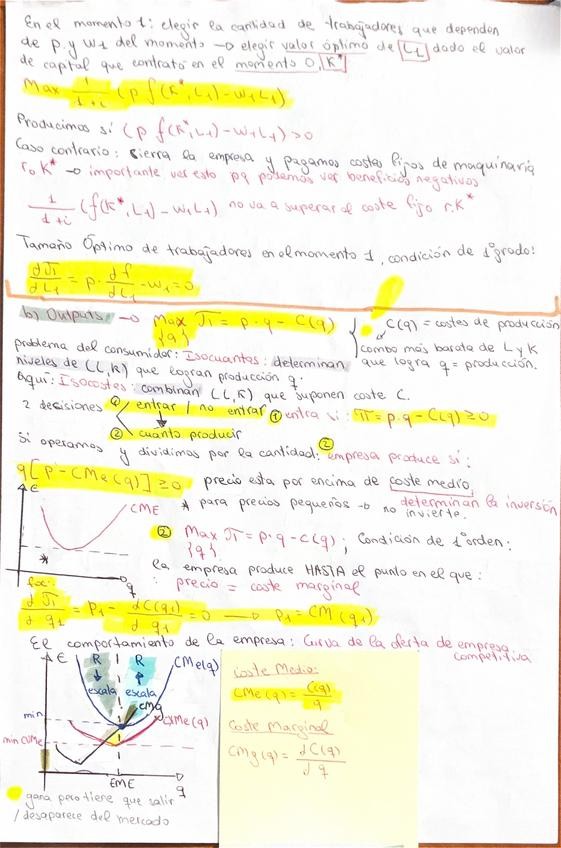 En el momento 1: elegir la cantidad de trabajadores que dependen
de p. y w1 del momento → elegir valor óptimo de L1 dado el valor
de captal que contrato en el momento 0, K*
Max 1/1+i (p f(K*, L1) - w1L1)
Producimos si (p f(K*, L1) - w1L1) > 0
Caso contrario: sierra la empresa y pagamos costes fijos de maquinaria
r.K* → importante ver esto pq podemos ver beneficios negativos
1/1+i (f(K*, L1) - w1L1) no va a superar al coste fijo r.K*
Tamaño Óptimo de trabajadores en el momento 1, condición de 1º grado:
dπ/dL1 = p. df/dL1 - w1 = 0
b) Outputs → Max {q} π = p.q - C(q)
C(q) = costes de producción
combo más barata de L y K
que logra q = producción.
problema del consumidor: Isocuantas: determinan
niveles de (L, K) que logran producción q.
Aquí: Isocostes: combinan (L, K) que suponen coste C.
2 decisiones ① entrar / no entrar ① entra si: π = p.q - C(q) ≥ 0
② cuanto producir
Si operamos y dividimos por la cantidad: ② empresa produce si:
q[p - CMe(q)] ≥ 0 precio esta por encima de coste medio
* para precios pequeños → no invierte.
determinan la inversión
€
CME
*
q
② Max {q} π = p.q - C(q); Condición de 1º orden:
la empresa produce HASTA el punto en el que:
: precio = coste marginal
foc:
dπ/dq1 = p1 - dC(q1)/dq1 = 0 → p1 = CM(q1)
El comportamiento de la empresa: Curva de la oferta de empresa
competitiva
€
R ↓ escala
R ↑ escala
CMe(q)
CMg
CVMe(q)
min
min CVMe
EME
q
gana pero tiene que salir
/desaparece del mercado
Coste Medio:
CMe(q) = C(q)/q
Coste Marginal
CMg(q) = dC(q)/dq